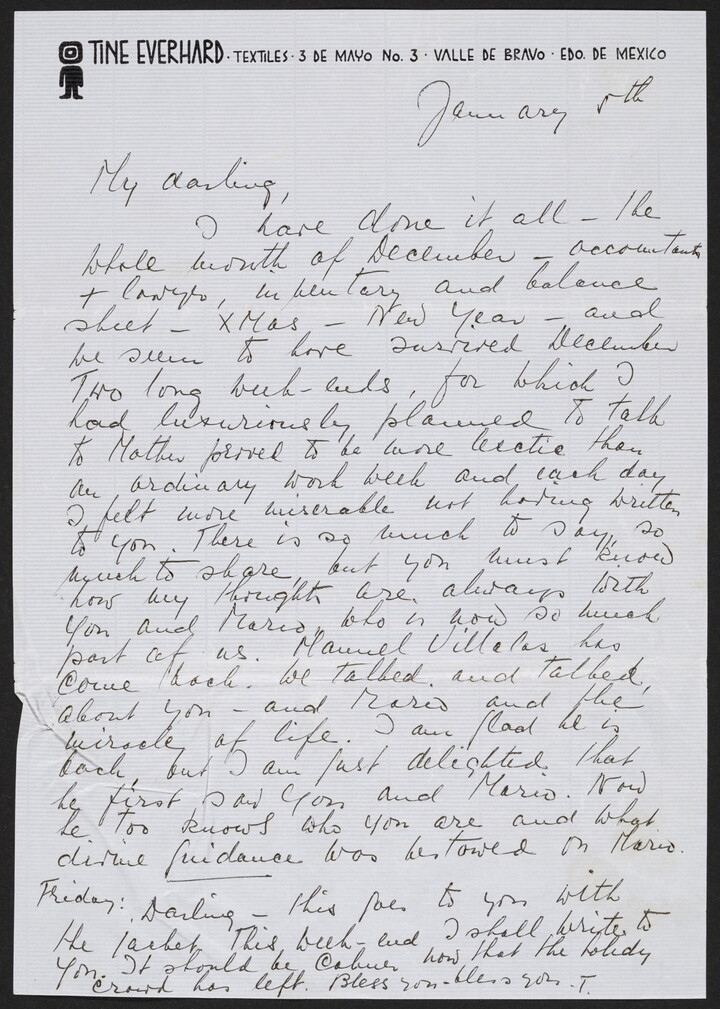 TINE EVERHARD · TEXTILES · 3 DE MAYO No. 3 · VALLE DE BRAVO · EDO. DE MEXICO
January 5th
My darling,
I have done it all – the
whole month of December – accountants
+ lawyer, inventory and balance
sheet – XMas – New Year – and
we seem to have survived December
Two long week-ends, for which I
had luxuriously planned to talk
to Mother proved to be more hectic than
an ordinary work week and each day
I felt more miserable not having written
to you. There is so much to say, so
much to share, but you must know
how my thoughts are always with
You and Mario, who is now so much
part of us. Manuel Villalas has
come back. We talked and talked,
about you – and Mario and the
miracle of life. I am glad he is
back, but I am just delighted that
he first saw You and Mario. Now
he too knows who you are and what
divine guidance was bestowed on Mario.
Friday: Darling – this goes to you with
the jacket. This week-end I shall write to
You. It should be calmer now that the holiday
crowd has left. Bless you – bless you. T.